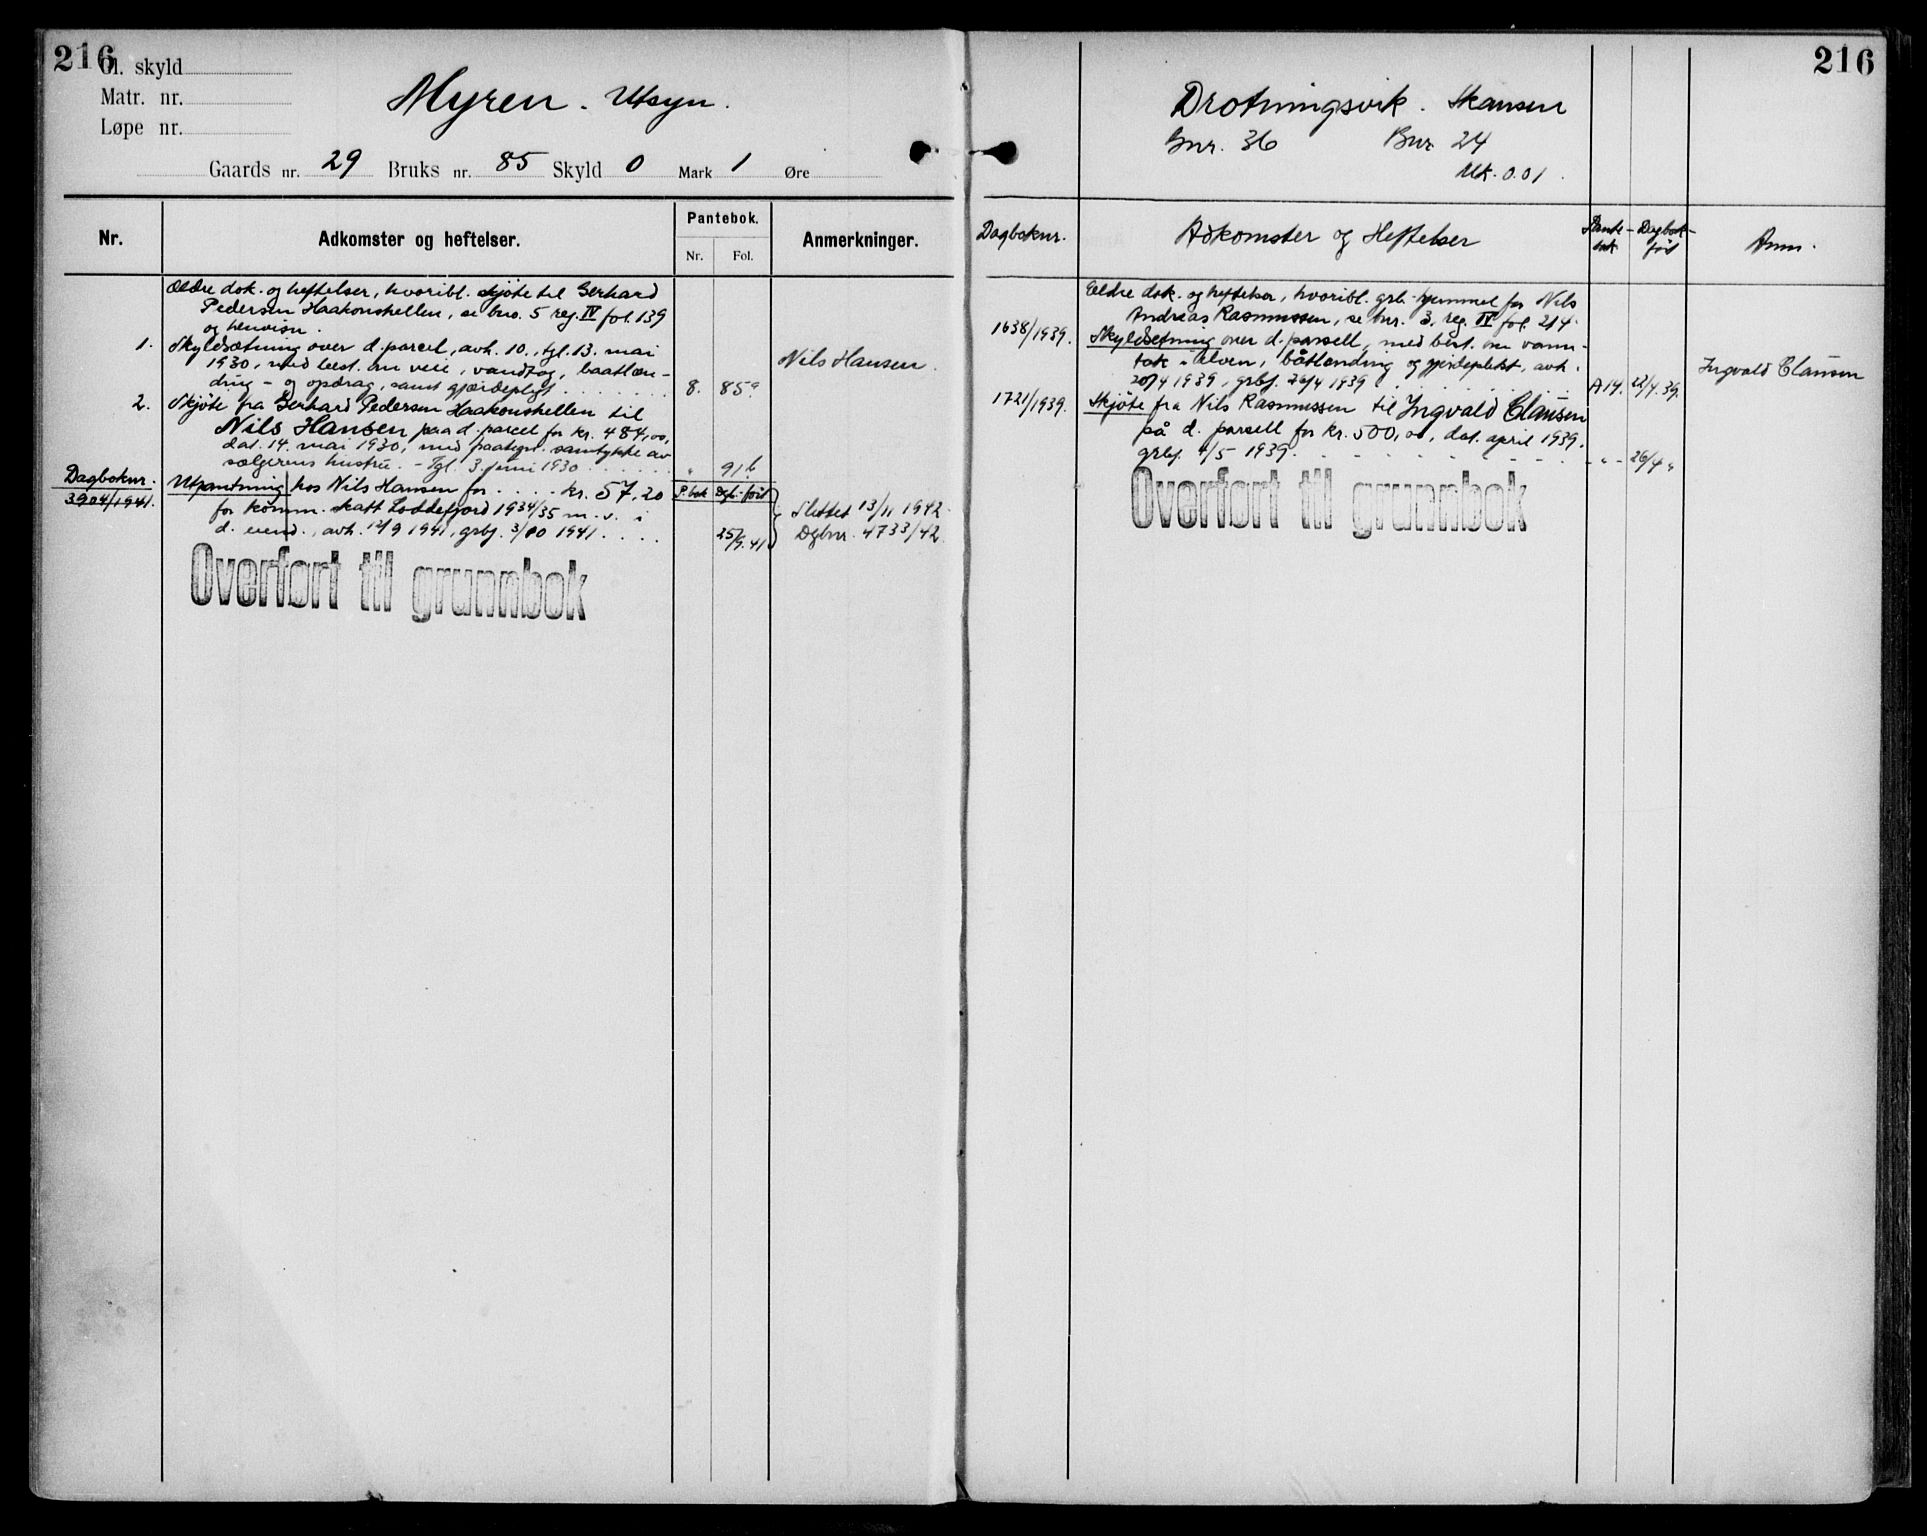 216
Gl. skyld
Matr. nr.
Løpe nr.
Myren. Utsyn.
Gaards nr. 29 Bruks nr. 85 Skyld 0 Mark 1 Øre
Nr.
Adkomster og heftelser.
Pantebok.
Nr. Fol.
Anmerkninger.
Ældre dok. og heftelser, hvoribl. skjøte til Gerhard
Pedersen Haakonshellen, se bno. 5 reg. IV fol. 139
og henvisn.
1. Skyldsætning over d. parcel, avh. 10., tgl. 13. mai
1930, med best. om veie, vandtag, baatlæn-
ding - og opdrag, samt gjærdepligt . . . . . . . 8. 85a
Nils Hansen.
2. Skjøte fra Gerhard Pedersen Haakonshellen til
Nils Hansen paa d. parcel for kr. 484,00,
dat. 14. mai 1930, med paategn. samtykke av
sælgerens hustru. - Tgl. 3. juni 1930 . . . . . . " 91b
Dagboknr.
3904/1941.
Utpantning hos Nils Hansen for . . . . kr. 57,20
P.bok Dgb. ført
for komm. skatt Loddefjord 1934/35 m. v. i
d. eiend., avh. 12/9 1941, grbf. 3/10 1941 . . . . 25/9.41
Slettet 13/11 1942
Dgbnr. 4733/42
Overført til grunnbok
216
Drotningsvik. Skansen
Gnr. 36 Bnr 24
Mk. 0.01.
Dagboknr.
Adkomster og Heftelser
Pante-
bok
Dagbok-
ført
Anm.
Eldre dok. og heftelser, hvoribl. grb. hjemmel for Nils
Andreas Rasmussen, se bnr. 3, reg. IV fol. 214.
1638/1939. Skyldsetning over d. parsell, med best. om vann-
tak i elven, båtlending og gjerdeplikt, avh.
20/4 1939, grbf. 26/4 1939 . . . . . . . A14. 22/4.39.
Ingvald Clausen
1721/1939. Skjøte fra Nils Rasmussen til Ingvald Clausen
på d. parsell for kr. 500,00, dat. april 1939,
grbf. 4/5 1939. . . . . . . . . - " - 26/4 "
Overført til grunnbok